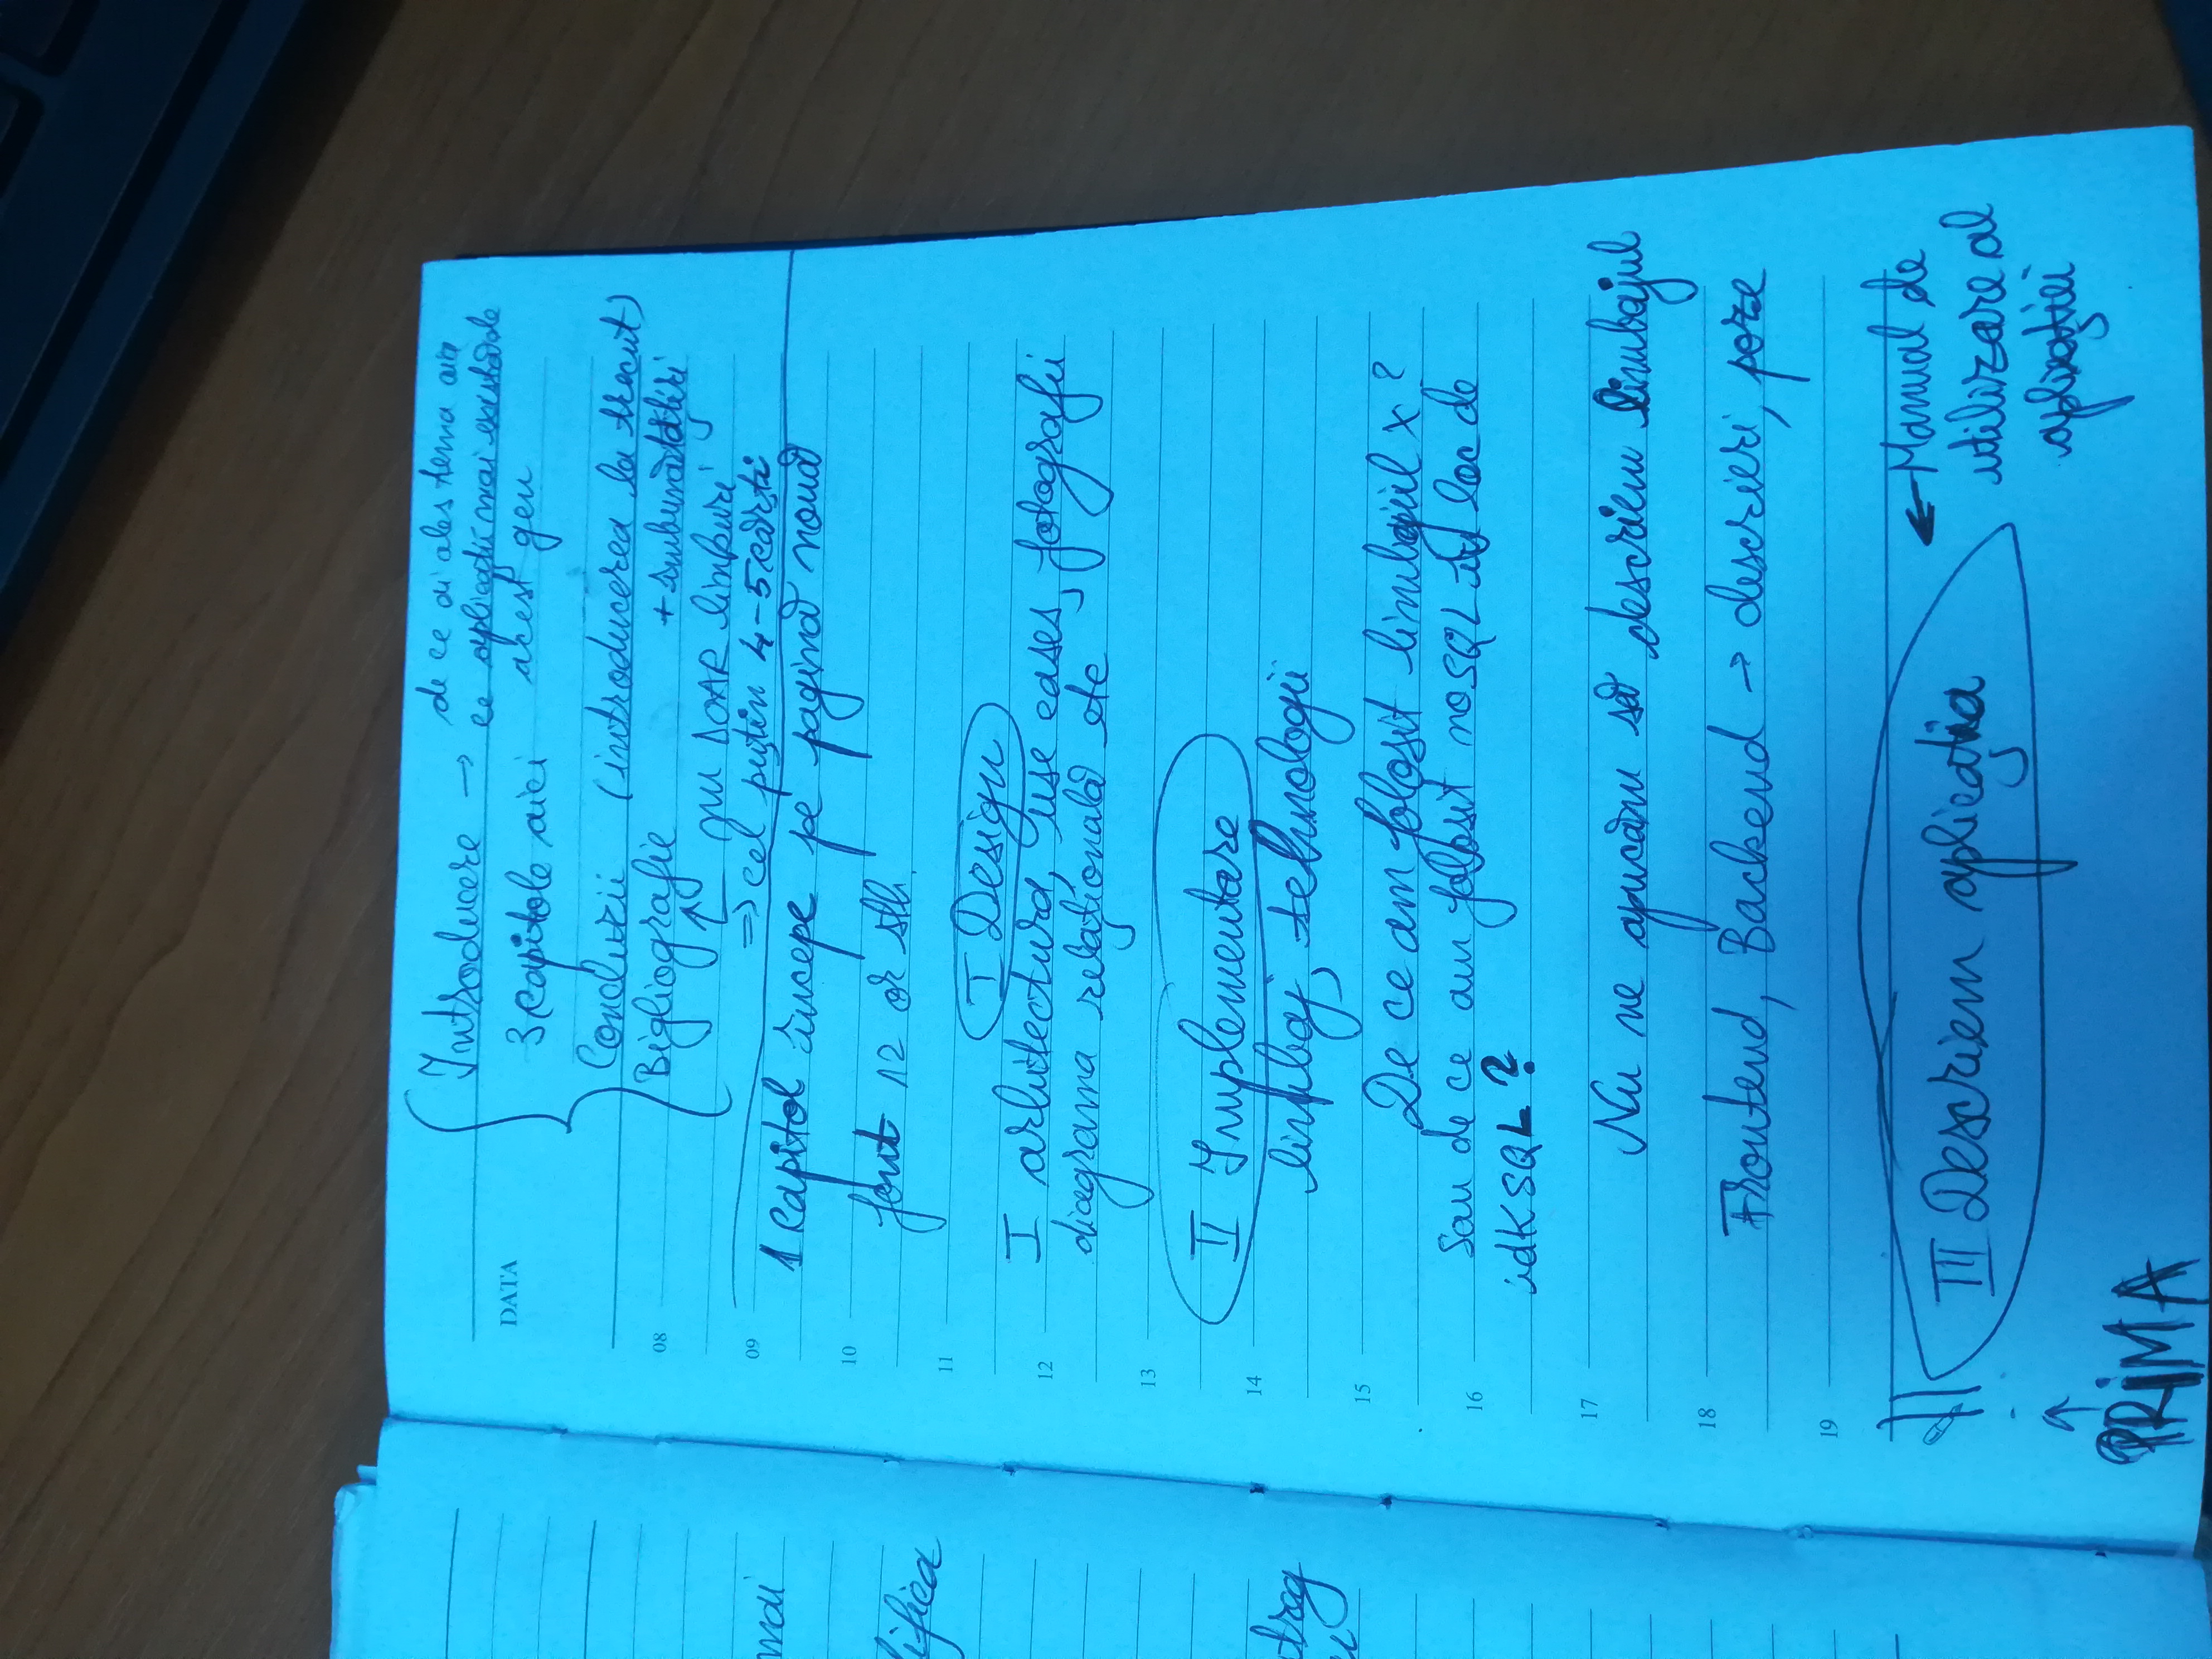 Introducere → de ce ai ales tema aia
ce aplicații mai există de
acest gen
DATA
3 capitole aici
Concluzii (introducerea la trecut)
+ îmbunătățiri
08
Bigliografie
↑ nu DOAR linkuri
09
⇒ cel puțin 4-5 cărți
1 capitol începe pe pagină nouă
10
font 12 or sth.
11
I Design
I arhitectura, use cases, fotografii
12
diagrama relațională etc
13
II Implementare
14
limbaj, tehnologii
15
De ce am folosit limbajul x?
Sau de ce am folosit noSQL în loc de
16
idk SQL?
17
Nu ne apucăm să descriem limbajul
18
Frontend, Backend → descrieri, poze
19
III Descriem aplicația
← Manual de
utilizare al
aplicației
↑
PRIMA
mai
ifica
trag